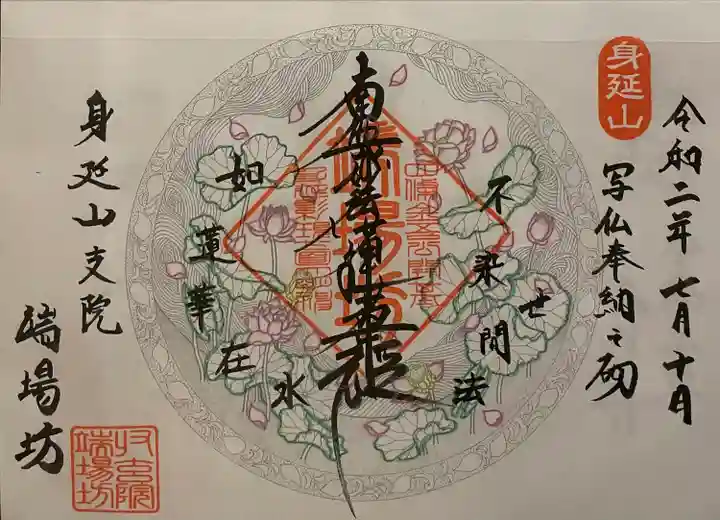 令和二年七月十日
写仏奉納之砌
身延山
不染世間法
南無妙法蓮華経
如蓮華在水
身延山支院
端場坊
端場坊